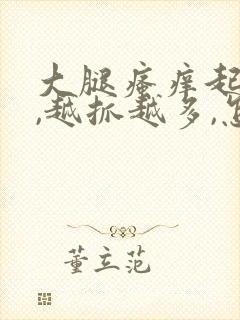 大腿瘙痒起
,越抓越多,怎
董立范